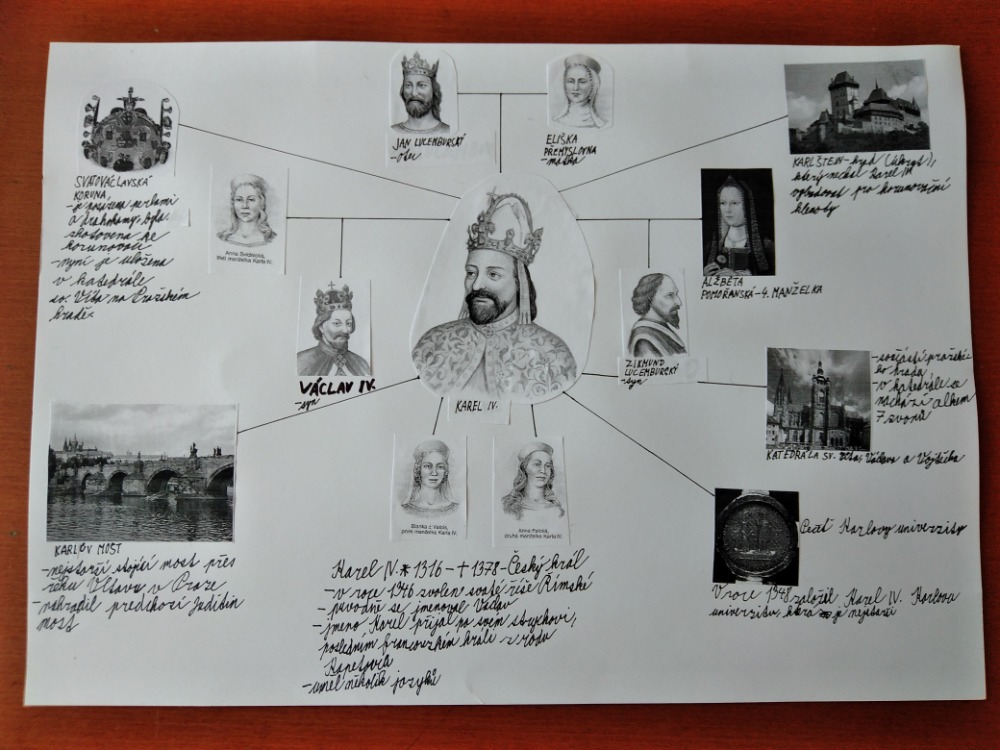 JAN LUCEMBURSKÝ
-otec
ELIŠKA
PŘEMYSLOVNA
-matka
SVATOVÁCLAVSKÁ
KORUNA
-je posázena perlami
a drahokamy, byla
zhotovena ke
korunovaci
-nyní je uložena
v katedrále
sv. Víta na Pražském
hradě.
Anna Svídnická,
třetí manželka Karla IV.
KARLŠTEJN-hrad
který nechal Karel IV
vybudovat pro korunovační
klenoty
ALŽBĚTA
POMOŘANSKÁ-4. MANŽELKA
VÁCLAV IV.
-syn
KAREL IV.
ZIKMUND
LUCEMBURSKÝ
-syn
-součástí pražské
ho hradu
-v katedrále se
nachází celkem
7 zvonů
KATEDRÁLA SV. Víta, Václava a Vojtěcha
KARLŮV MOST
-nejstarší stojící most přes
řeku Vltavu v Praze
-nahradil předchozí Juditin
most
Blanka z Valois,
první manželka Karla IV.
Anna Falcká,
druhá manželka Karla IV.
Pečeť Karlovy univerzity
V roce 1348 založil Karel IV. Karlovu
univerzitu, která je nejstarší
Karel IV. * 1316 - † 1378 - Český král
-v roce 1346 zvolen svaté říše Římské
-původně se jmenoval Václav
-jméno Karel přijal po svém strýchovi,
posledním francouzském králi z rodu
Kapetovců
-uměl několik jazyků